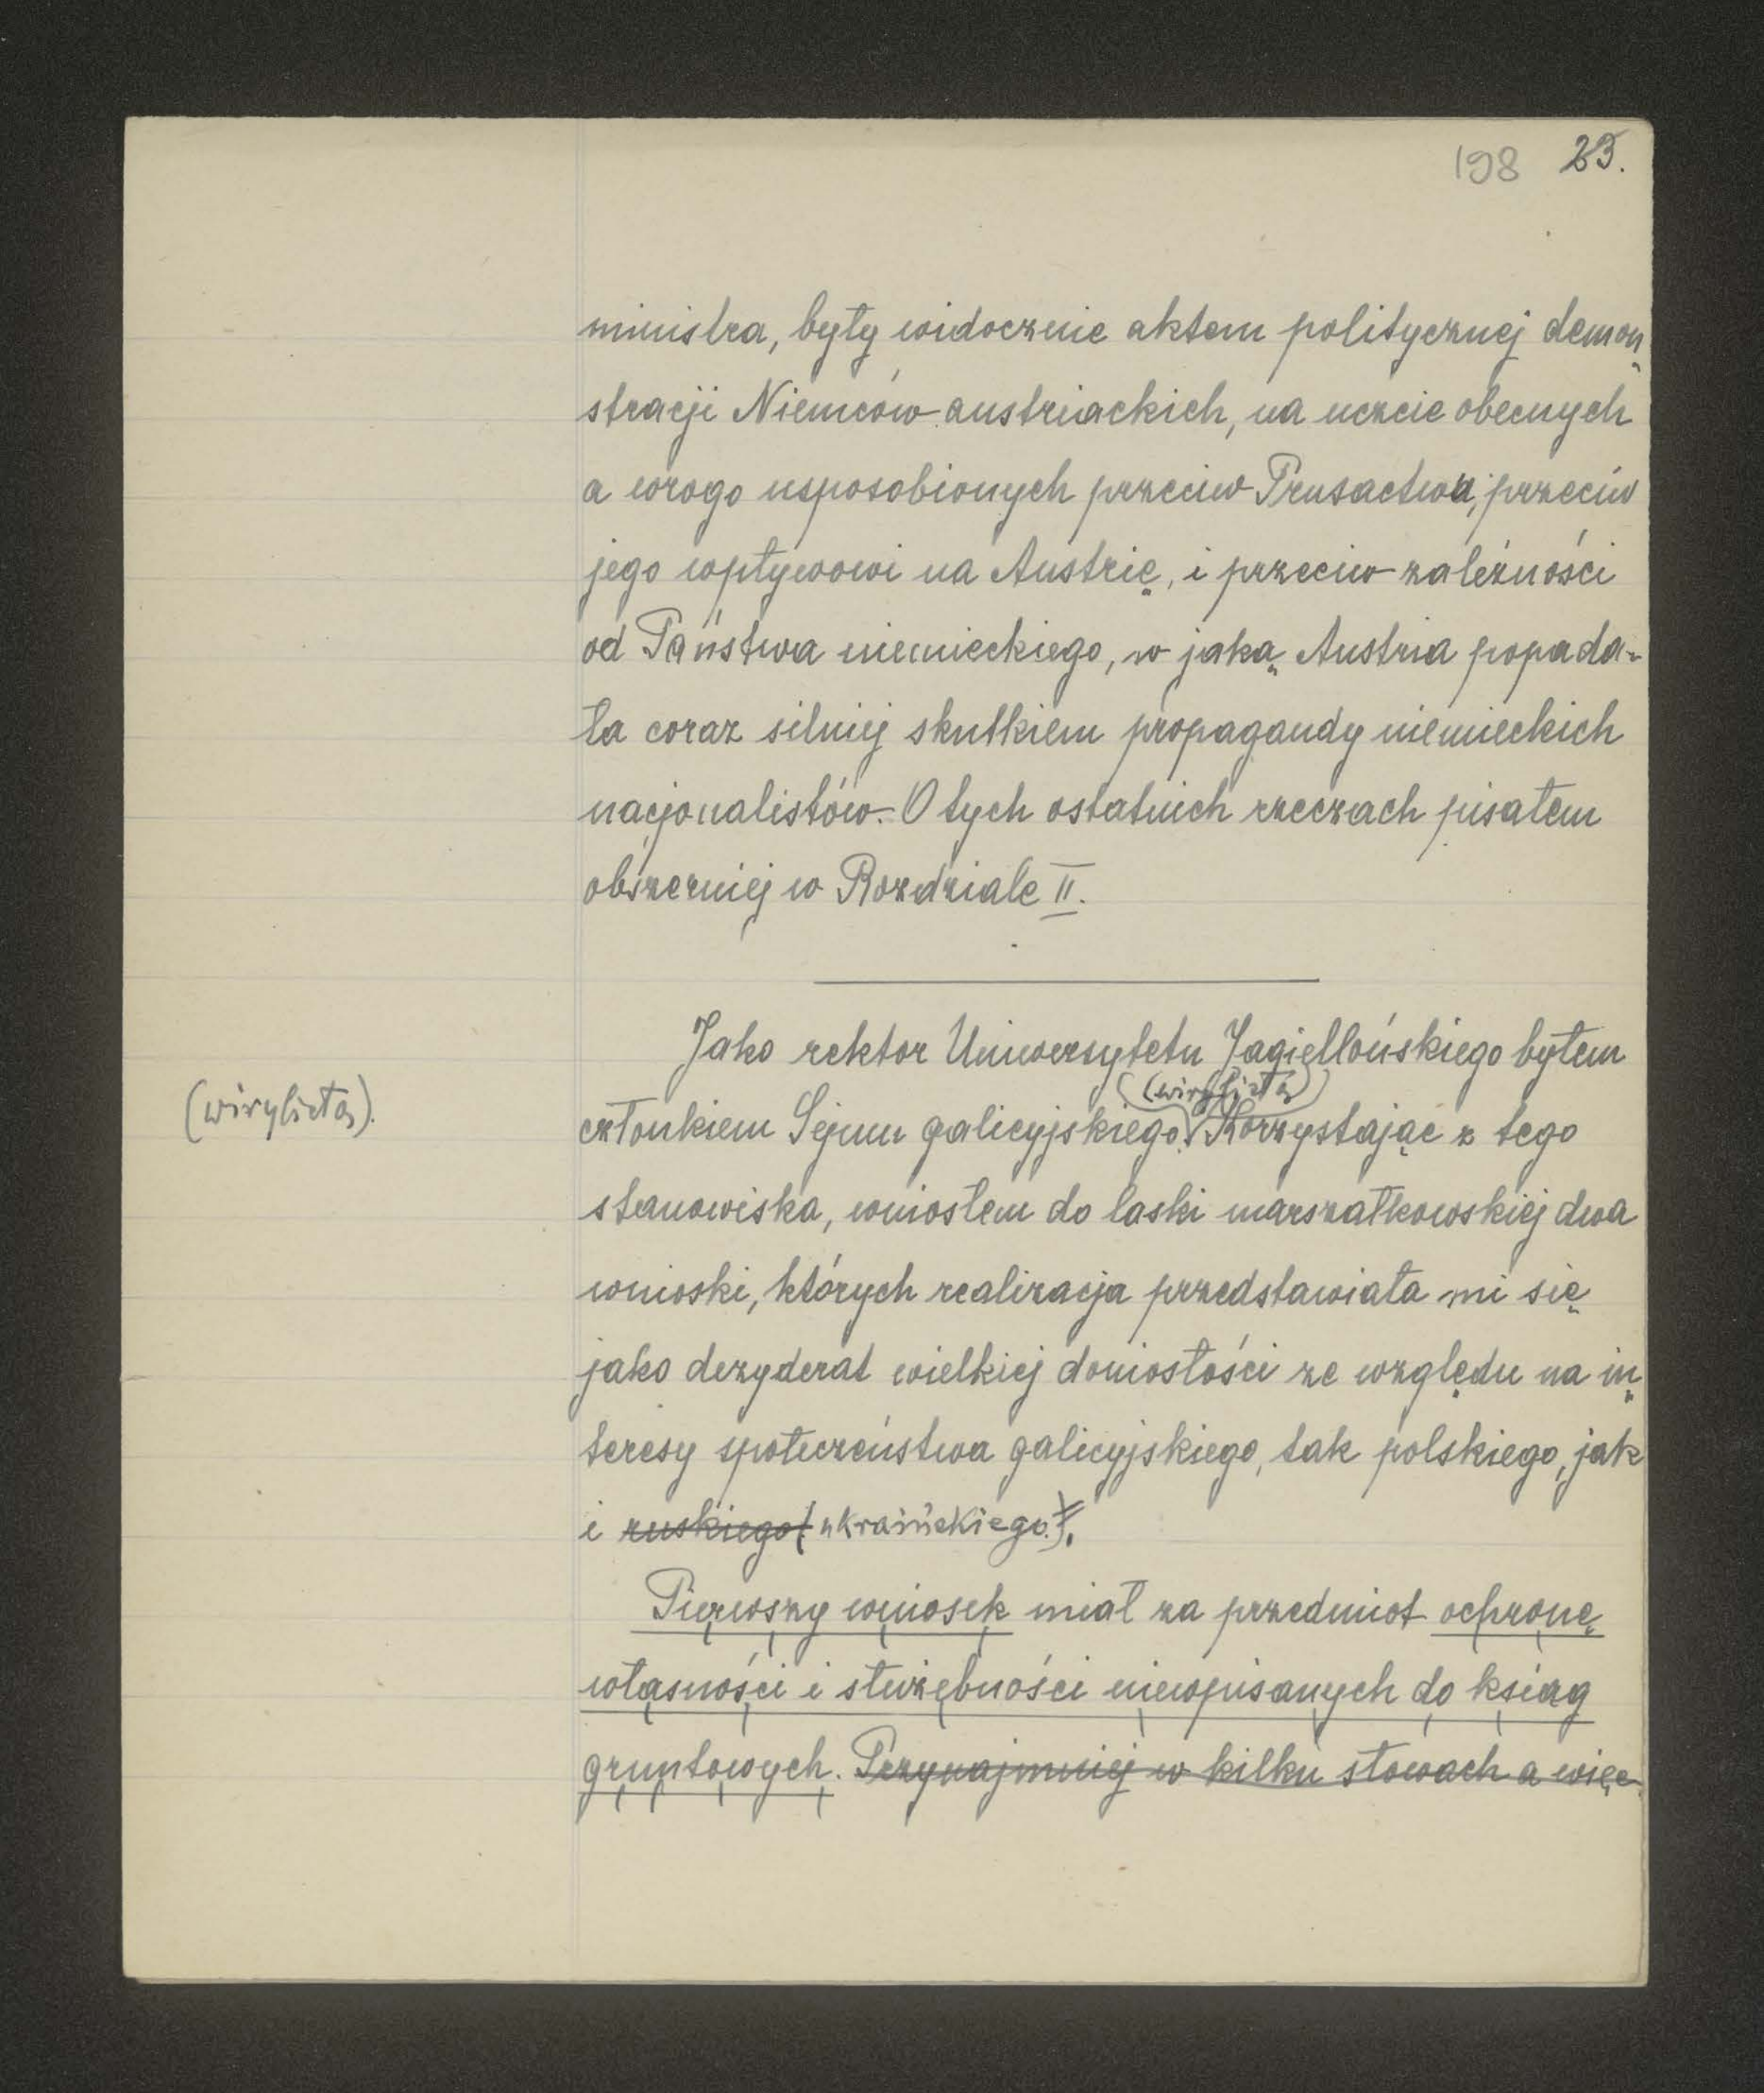 198 23.
ministra, były widocznie aktem politycznej demon
stracji Niemców austriackich, na uczcie obecnych
a wrogo usposobionych przeciw Prusactwu, przeciw
jego wpływowi na Austrię, i przeciw zależności
od Państwa niemieckiego, w jaką Austria popada-
ła coraz silniej skutkiem propagandy niemieckich
nacjonalistów. O tych ostatnich rzeczach pisałem
obszerniej w Rozdziale II.
Jako rektor Uniwersytetu Jagiellońskiego byłem
(wirylistą)
(wirylistą).
członkiem Sejmu galicyjskiego. Korzystając z tego
stanowiska, wniosłem do laski marszałkowskiej dwa
wnioski, których realizacja przedstawiała mi się
jako dezyderat wielkiej doniosłości ze względu na in
teresy społeczeństwa galicyjskiego, tak polskiego, jak
i ruskiego (ukraińskiego).
Pierwszy wniosek miał za przedmiot ochronę
własności i służebności niewpisanych do ksiąg
gruntowych. Przynajmniej w kilku słowach a więc